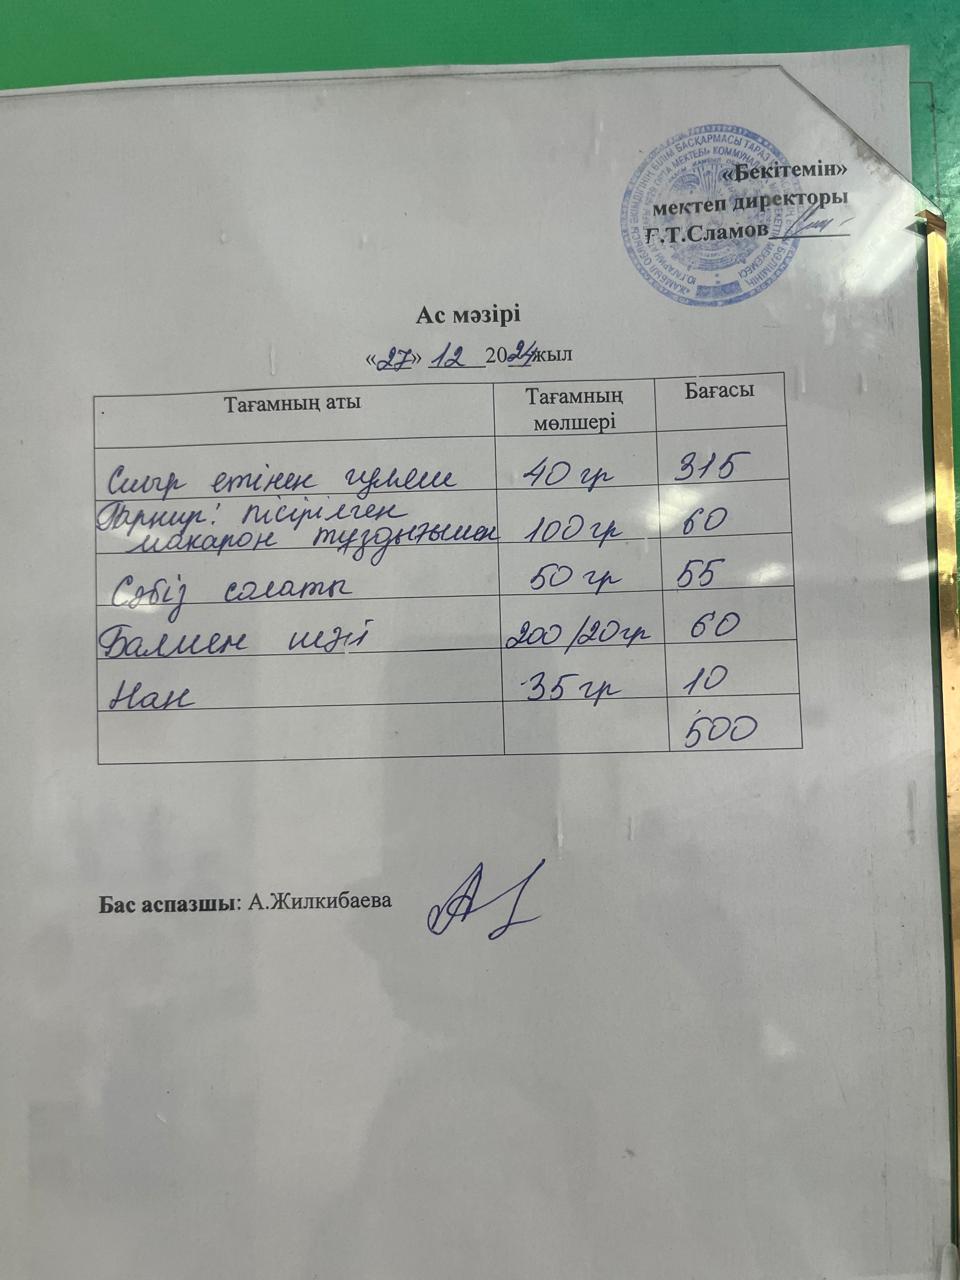 «Бекітемін»
мектеп директоры
Ғ.Т.Сламов
Ас мәзірі
«27» 12 2024жыл
Тағамның аты Тағамның мөлшері Бағасы
Сиыр етінен гуляш 40 гр 315
Гарнир: пісірілген
макарон тұздығымен 100 гр 60
Сәбіз салаты 50 гр 55
Балмен шәй 200/20гр 60
Нан 35 гр 10
500
Бас аспазшы: А.Жилкибаева